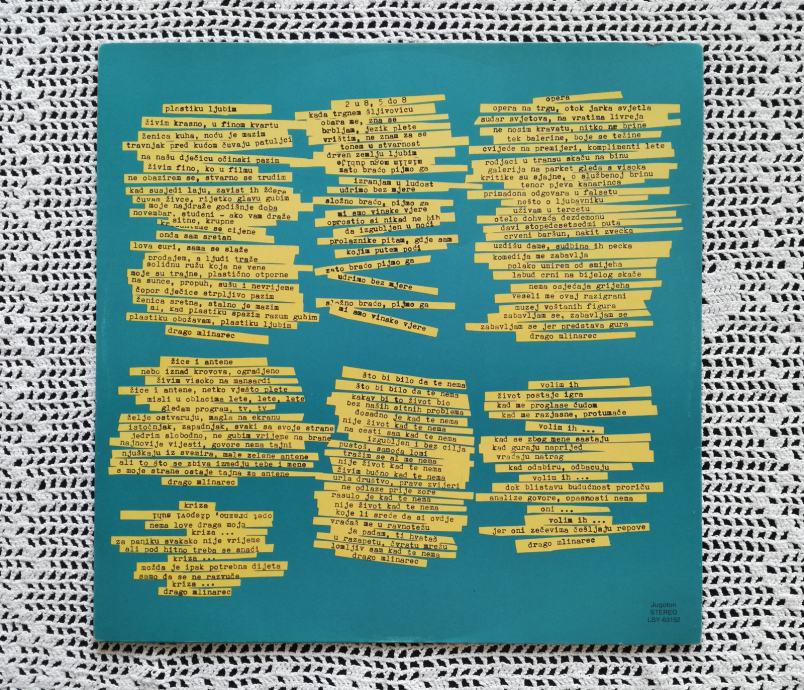 plastiku ljubim
živim krasno, u finom kvartu
ženica kuha, nodu je mazim
travnjak pred kućom čuvaju patuljci
na našu dječicu očinski pazim
živim fino, ko u filmu
ne obazirem se, stvarno se trudim
kad susjedi laju, zavist ih ždere
čuvam živce, rijetko glavu gubim
moje najdraže godišnje doba
novembar, studeni - ako vam draže
sitne, krupne
se cijene
onda sam sretan
lova curi, sama se slaže
prodajem, a ljudi traže
solidnu ružu koja ne vene
moje su trajne, plastično otporne
na sunce, propuh, sušu i nevrijeme
čopor dječice strpljivo pazim
ženica sretna, stalno je mazim
al, kad plastiku spazim razum gubim
plastiku obožavam, plastiku ljubim
drago mlinarec
2 u 8, 5 do 8
kada trgnem šljivovicu
obara me, zna se
brbljam, jezik plete
vrištim, ne znam za se
tonem u stvarnost
drven zemlju ljubim
zato braćo pijmo ga
izranjam u ludost
udrimo bez mjere
složno braćo, pijmo ga
mi smo vinske vjere
oprostio si nikad ne bih
da izgubljen u noći
prolaznike pitam, gdje sam
kojim putem poći
zato braćo pijmo ga
udrimo bez mjere
složno braćo, pijmo ga
mi smo vinske vjere
opera
opera na trgu, otok jarka svjetla
sudar svjetova, na vratima livreja
ne nosim kravatu, nitko ne brine
tek balerine, boje se težine
cvijeće na premijeri, komplimenti lete
rodjaci u transu skaču na binu
galerija na parket gleda s visoka
kritike su sjajne, o službenoj binu
tenor pjeva kanarinca
primadona odgovara u falsetu
nešto o ljubavniku
uživam u tercetu
otelo dohvaća dezdemonu
davi stopedesetsedmi puta
crveni baršun, nakit zvecka
uzdišu dame, sudbina ih pecka
komedija me zabavlja
polako umirem od smijeha
labud crni na bijelog skače
nema osjećaja grijeha
veseli me ovaj razigrani
muzej voštanih figura
zabavljam se, zabavljam se
zabavljam se jer predstava gura
drago mlinarec
žice i antene
nebo iznad krovova, ogradjeno
živim visoko na mansardi
žice i antene, netko vješto plete
misli u oblacima lete, lete, lete
gledam program, tv, tv
želje ostvaruju, magla na ekranu
istočnjak, zapadnjak, svaki sa svoje strane
jedrim slobodno, ne gubim vrijeme na brane
najnovije vijesti, govore nema tajni
njuškaju iz svemira, male zelene antene
ali to što se zbiva izmedju tebe i mene
s moje strane ostaje tajna za antene
drago mlinarec
što bi bilo da te nema
što bi bilo da te nema
kakav bi to život bio
bez naših sitnih problema
dosadno je kad te nema
nije život kad te nema
na cesti sam kad te nema
izgubljen i bez cilja
pustoš, samoća lomi
tražim se al me nema
nije život kad te nema
živim bučno kad te nema
urla društvo, prave zvijeri
ne odlaze prije zore
rasulo je kad te nema
nije život kad te nema
koje li sreće da si ovdje
vraćaš me u ravnotežu
je padam, ti hvataš
u razapetu, čvrstu mrežu
lomljiv sam kad te nema
drago mlinarec
volim ih
život postaje igra
kad me proglase čudom
kad me razjasne, protumače
volim ih ...
kad se zbog mene sastaju
kad guraju naprijed
vraćaju natrag
kad odabiru, odbacuju
volim ih ...
dok blistavu budućnost proriču
analize govore, opasnosti nema
oni ...
volim ih ...
jer oni zečevima češljaju repove
drago mlinarec
kriza
nema love draga moja
kriza ...
za paniku svakako nije vrijeme
ali pod hitno treba se snaći
kriza ...
možda je ipak potrebna dijeta
samo da se ne razvuče
kriza ...
drago mlinarec
Jugoton
STEREO
LSY-63152